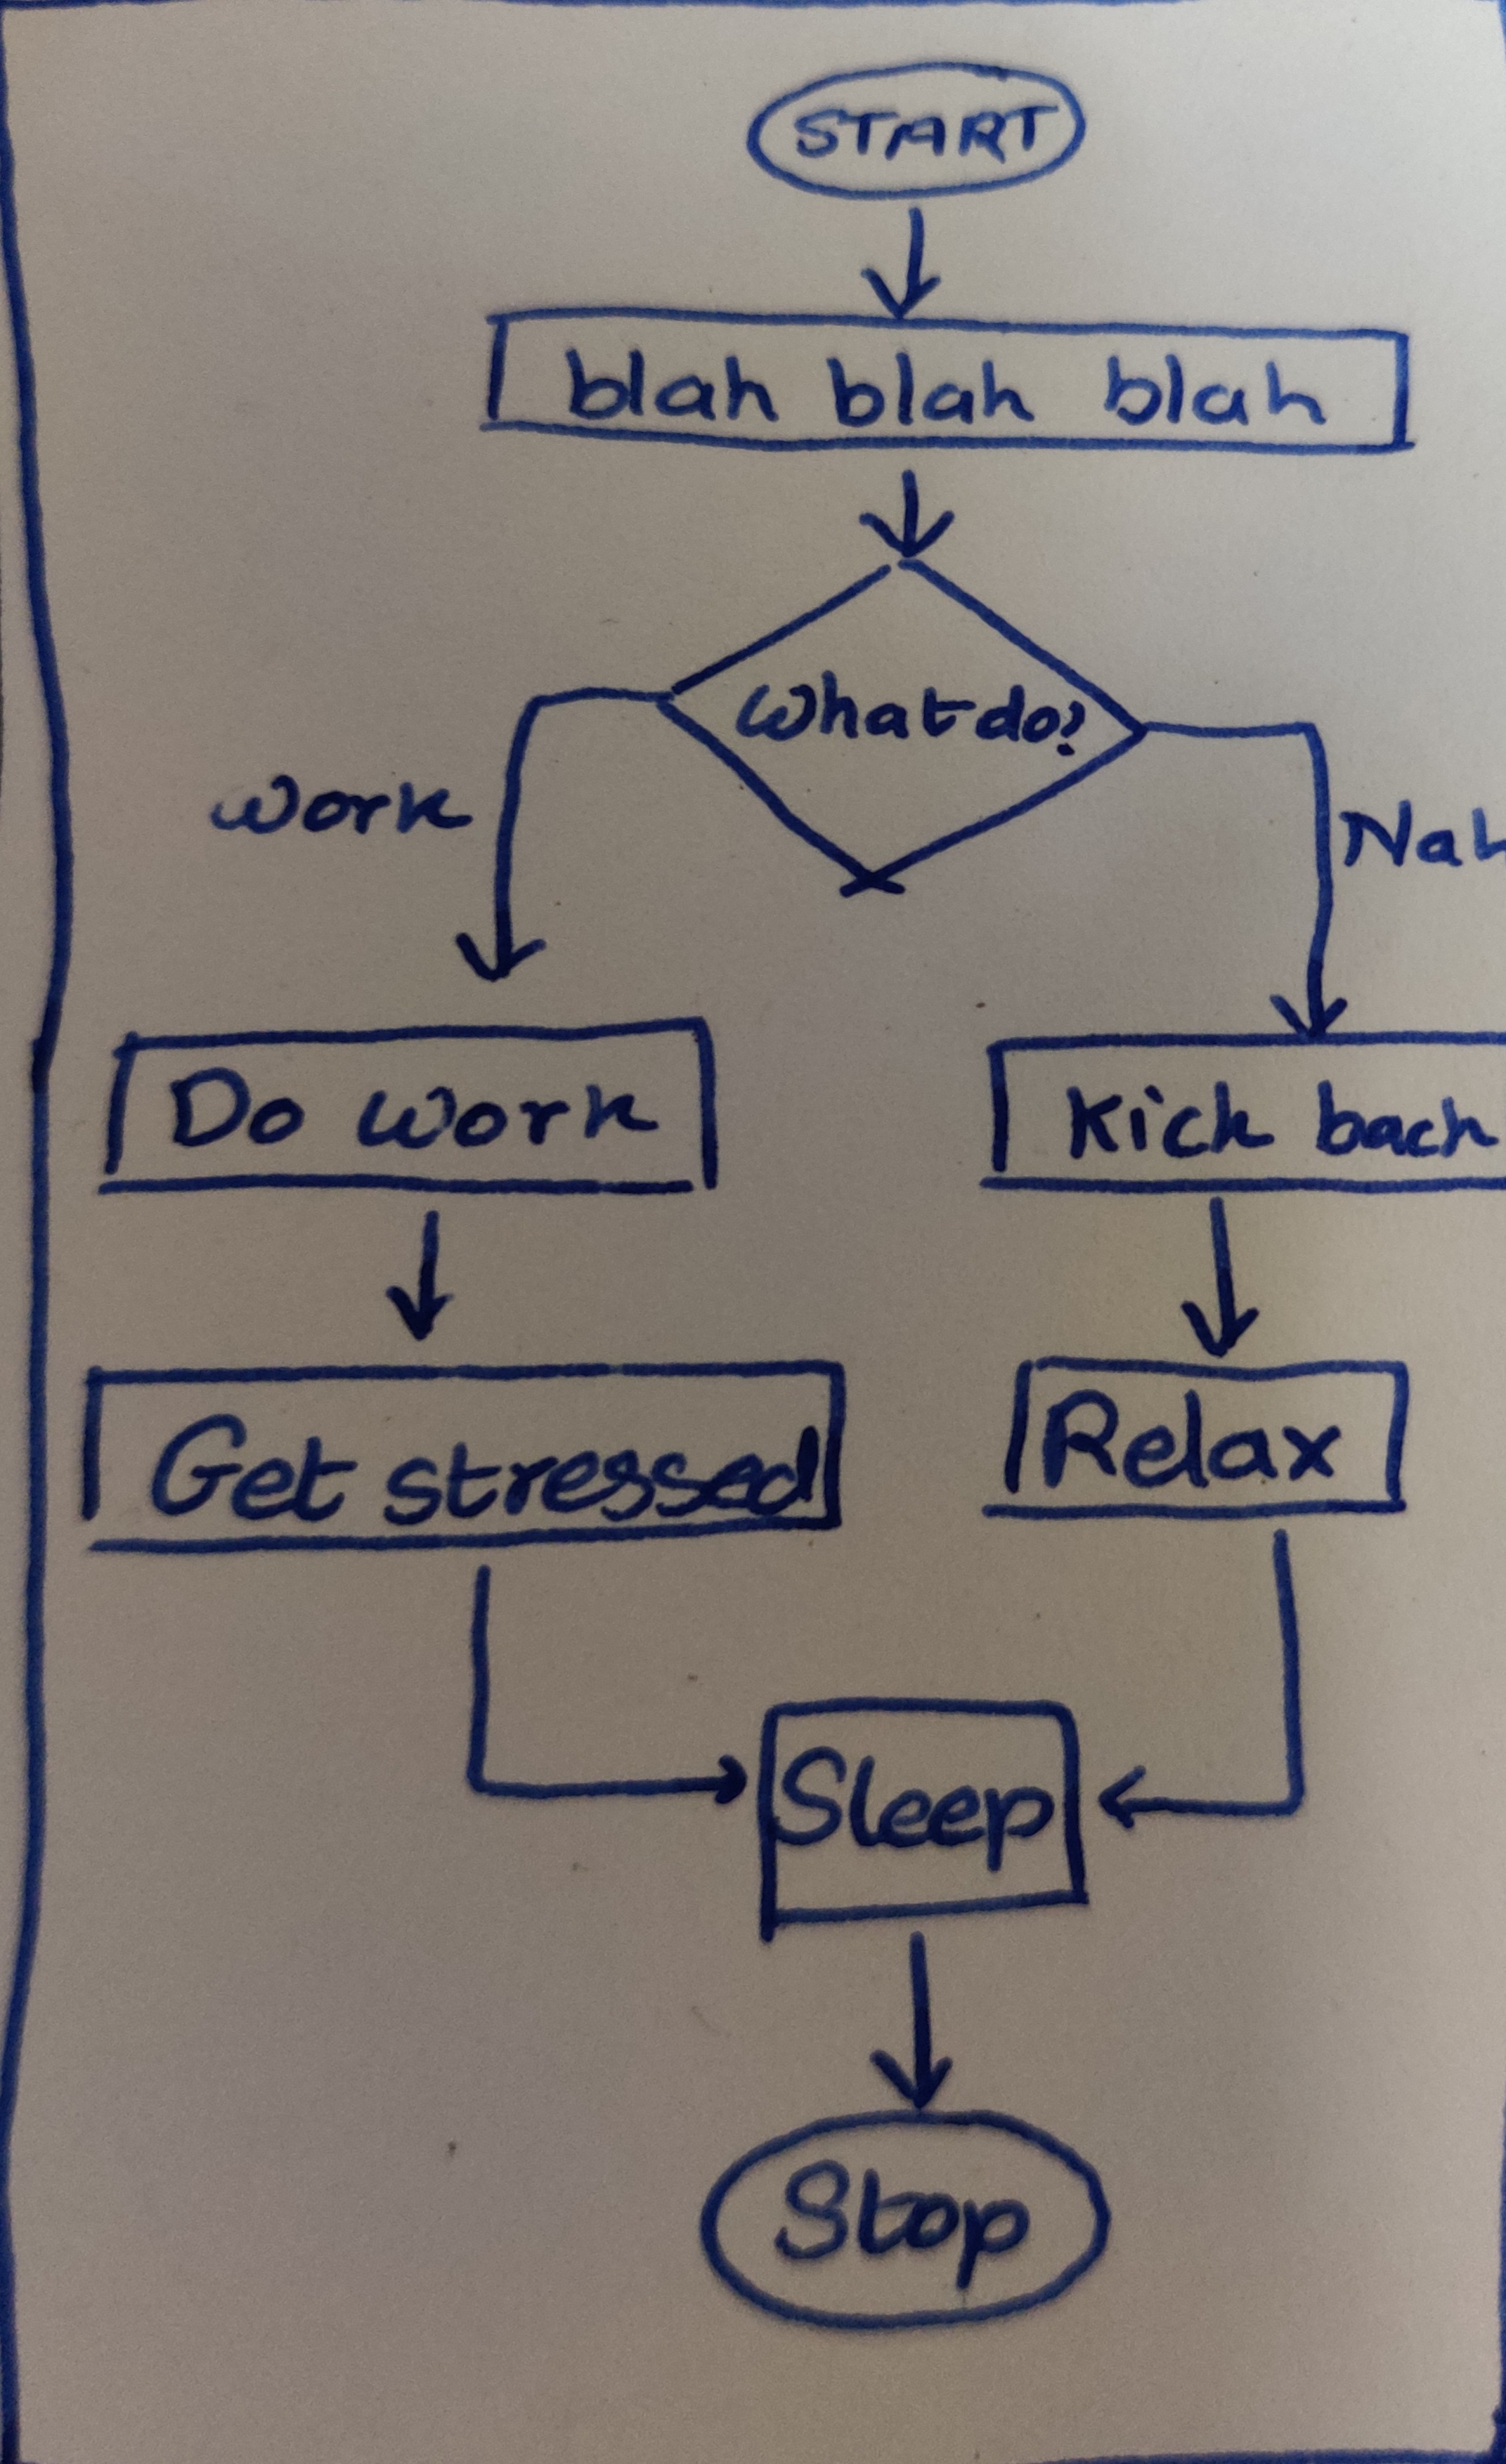 START
blah blah blah
What do?
Work
Nah
Do work
Kick back
Get stressed
Relax
Sleep
Stop